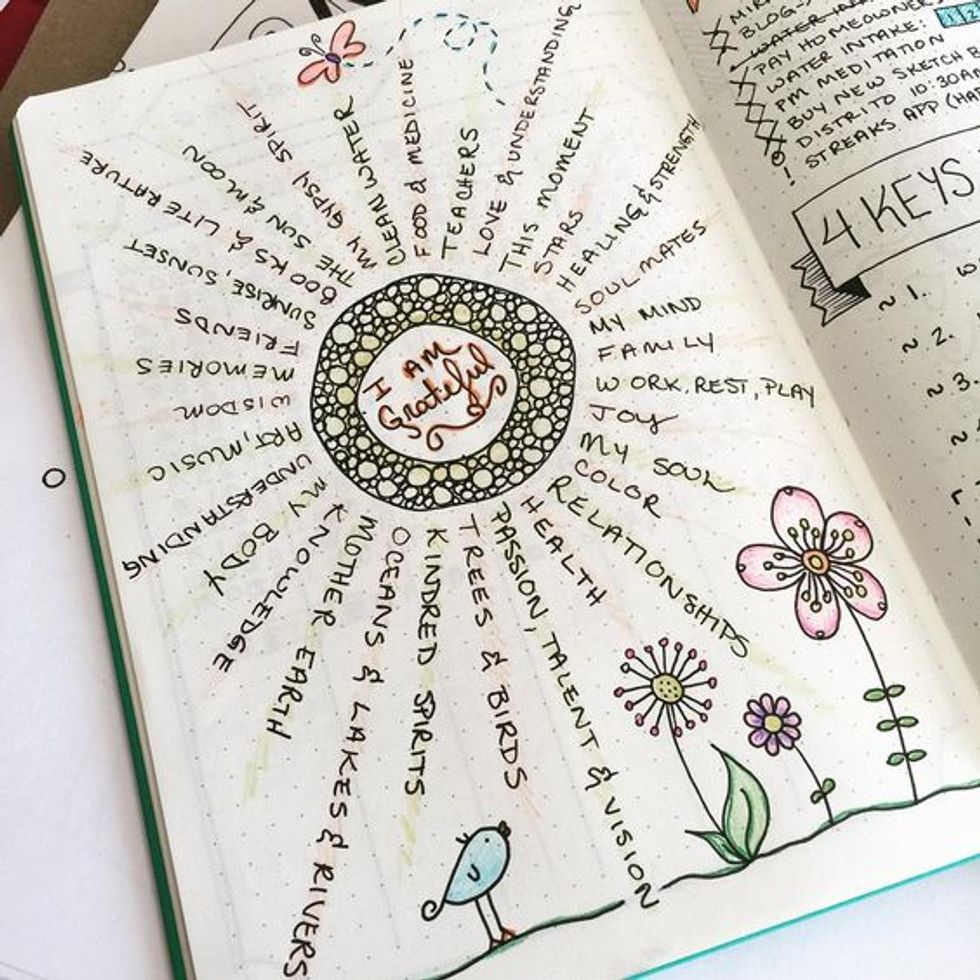 I AM
Grateful
CLEAN WATER
FOOD & MEDICINE
TEACHERS
LOVE & UNDERSTANDING
THIS MOMENT
STARS
HEALING & STRENGTH
SOULMATES
MY MIND
FAMILY
WORK, REST, PLAY
JOY
MY SOUL
COLOR
RELATIONSHIPS
HEALTH
PASSION, TALENT & VISION
TREES & BIRDS
KINDRED SPIRITS
OCEANS & LAKES & RIVERS
MOTHER EARTH
KNOWLEDGE
MY BODY
UNDERSTANDING
ART, MUSIC
WISDOM
MEMORIES
FRIENDS
SUNRISE, SUNSET
BOOKS & LITERATURE
THE SUN & MOON
MY GYPSY SPIRIT
BLOG
WATER
PAY HOMEOWNER
WATER INTAKE:
PM MEDITATION
BUY NEW SKETCH B
DISTRITO 10:30A
STREAKS APP (HA
4 KEYS
~ 1.
~ 2.
~ 3.